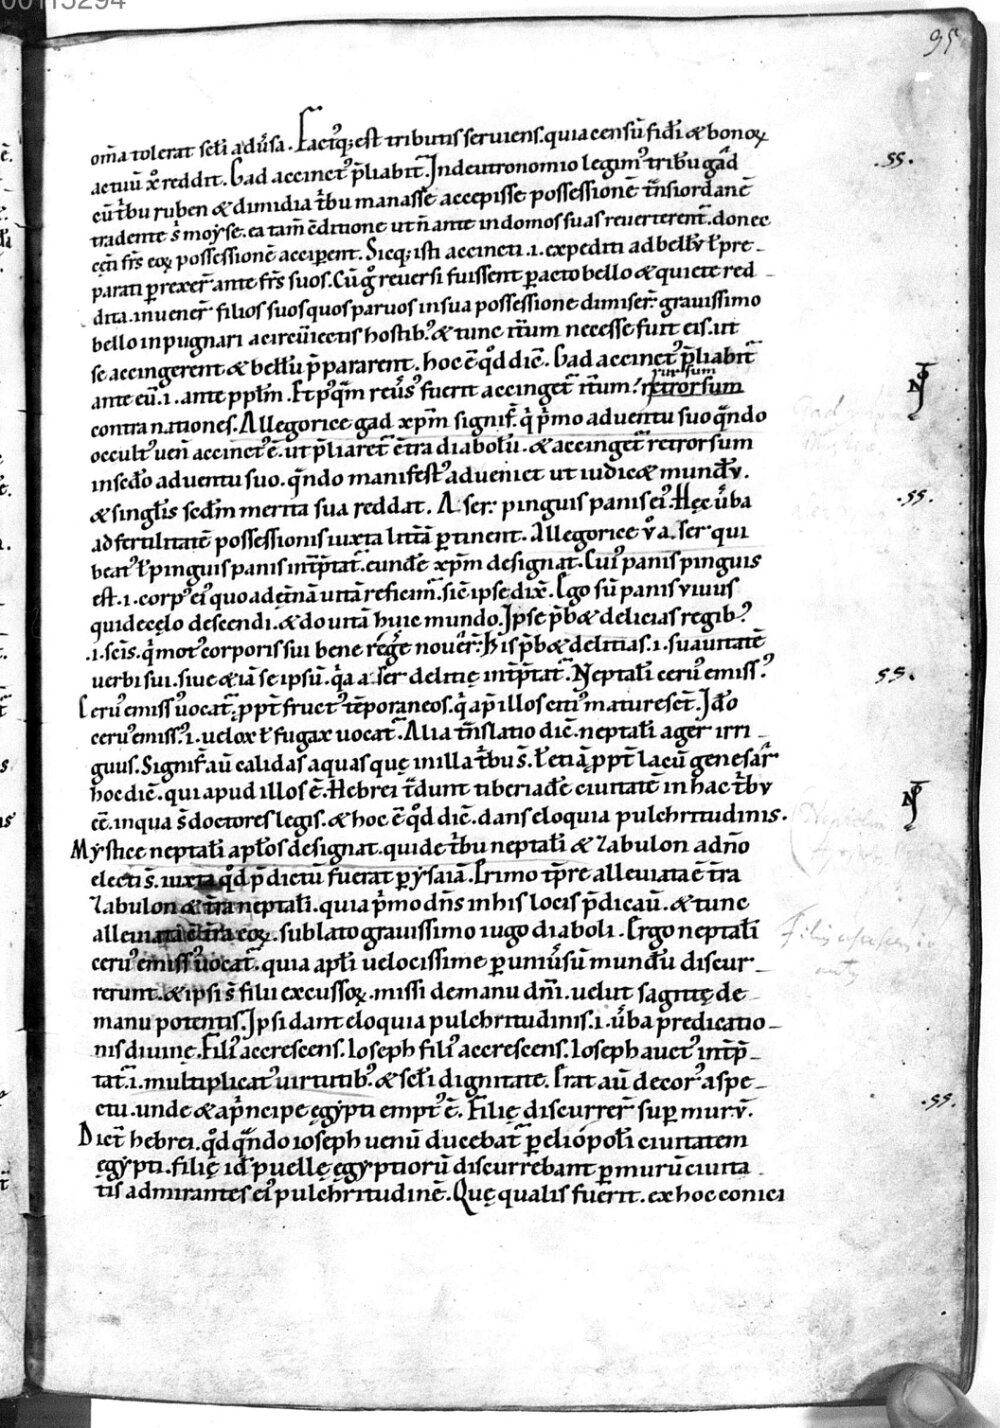 00115294
95
om̅a tolerat sc̅li adu̅sa. Factꝰq; est tributis seruiens. quia censu̅ fidi̅ & bonoꝝ
actuu̅ xp̅o reddit. Gad accinctꝰ p̅liabit̅. In deutronomio legimꝰ tribu̅ gad
.ss.
cu̅ t̅bu ruben & dimidia t̅bu manasse accepisse possessione̅ t̅nsiordane̅
tradente s̅ moyse. ea tam̅ c̅ditione ut n̅ ante in domos suas reuerterent̅. donec
cet̅i fr̅s eoꝝ possessione̅ acciperent. Sicq; isti accincti .i. expediti ad bellu̅ ł pre-
parati p̲rexer̅ ante fr̅s suos. Cu̅ g̊ reuersi fuissent p̲acto bello & quiete red-
dita. inuener̅ filios suos quos paruos in sua possessione dimiser̅. grauissimo
bello inpugnari a circu̅iectis hostibꝰ. & tunc it̅um necesse fuit eis. ut
se accingerent & bellu̅ p̅pararent. hoc e̅ qd̅ dic̅. Gad accinctꝰ p̅liabit̅
ante eu̅ .i. ante pp̅lm. Et pꝰq̅m reu̅sꝰ fuerit accinget̅ it̅um. retrorsum
contra nationes. Allegorice gad xp̅m signif̅. q̇ ṗmo aduentu suo q̅ndo
occultꝰ uen̅ accinctꝰ e̅. ut p̅liaret̅ c̅tra diabolu̅. & accinget̅ retrorsum
in sed̅o aduentu suo. q̅ndo manifestꝰ adueniet ut iudic& mundu̅.
& singl̅is sed̅m merita sua reddat. Aser. pinguis panis eiꝰ. Hęc u̅ba
.ss.
ad fertilitate̅ possessionis iuxta litt̅a̅ p̲tinent. Allegorice u̅o aser qui
beatꝰ ł pinguis panis int̅p̅tat̅. eunde̅ xp̅m designat. Cuiꝰ panis pinguis
est .i. corpꝰ eiꝰ quo ad et̅na̅ uita̅ reficim̅. sic̅ ipse dix̅. Ego su̅ panis uiuus
qui de cęlo descendi. & do uita̅ huic mundo. Ipse p̅b& delicias regibꝰ.
.i. sc̅is. q̇ motꝰ corporis sui bene rege̅ nouer̅. His p̅b& delitias .i. suauitate̅
uerbi sui. siue & ia̅ se ipsu̅. q̇a aser delitię int̅p̅tat̅. Neptali̅ ceruꝰ emissꝰ.
ss.
Ceruꝰ emissꝰ uocat̅. pp̅t̅ fructꝰ te̅poraneos. q̇ ap̅ illos citiꝰ maturesc̅t. Id̅o
ceruꝰ emissꝰ .i. uelox ł fugax uocat̅. Alia t̅nslatio dic̅. neptali̅ ager irri-
guus. Signif̅ au̅ calidas aquas quę in illa t̅bu s̅. ł etia̅ pp̅t̅ lacu̅ genesar̅
hoc dic̅. qui apud illos e̅. Hebrei t̅dunt tiberiade̅ ciuitate̅ in hac t̅bu
e̅e̅. in qua s̅ doctores legis. & hoc e̅ qd̅ dic̅. dans eloquia pulchritudinis.
Mystice neptali̅ apl̅os designat. qui de t̅bu neptali̅ & Zabulon a dn̅o
electi s̅. iuxta qd̅ p̅dictu̅ fuerat p̲ ysaia̅. Primo tp̅re alleuiata e̅ t̅ra
Zabulon & t̅ra neptali̅. quia ṗmo dn̅s in his locis p̅dicau̅. & tunc
alleuiata e̅ t̅ra eoꝝ. sublato grauissimo iugo diaboli. Ergo neptali̅
ceruꝰ emissꝰ uocat̅. quia apl̅i uelocissime p̲ uniu̅su̅ mundu̅ discur-
rerunt. & ipsi s̅ filii excussoꝝ. missi de manu dn̅i. uelut sagittę de
manu potentis. Ipsi dant eloquia pulchritudinis .i. u̅ba predicatio-
nis diuinę. Filiꝰ accrescens. Ioseph filiꝰ accrescens. Ioseph auctꝰ int̅p̅-
tat̅ .i. multiplicatꝰ uirtutibꝰ. & sc̅li dignitate. Erat au̅ decorꝰ aspe-
ctu. unde & a ṗncipe ęgypti emptꝰ e̅. Filię discurrer̅ sup̲ muru̅.
.ss.
Dic̅t hebrei. qd̅ q̅ndo ioseph uenu̅ ducebat̅ p̲ eliopoli̅ ciuitatem
ęgypti. filię id̅ puellę ęgyptioru̅ discurrebant p̲ muru̅ ciuita-
tis admirantes eiꝰ pulchritudine̅. Quę qualis fuerit. ex hoc conici